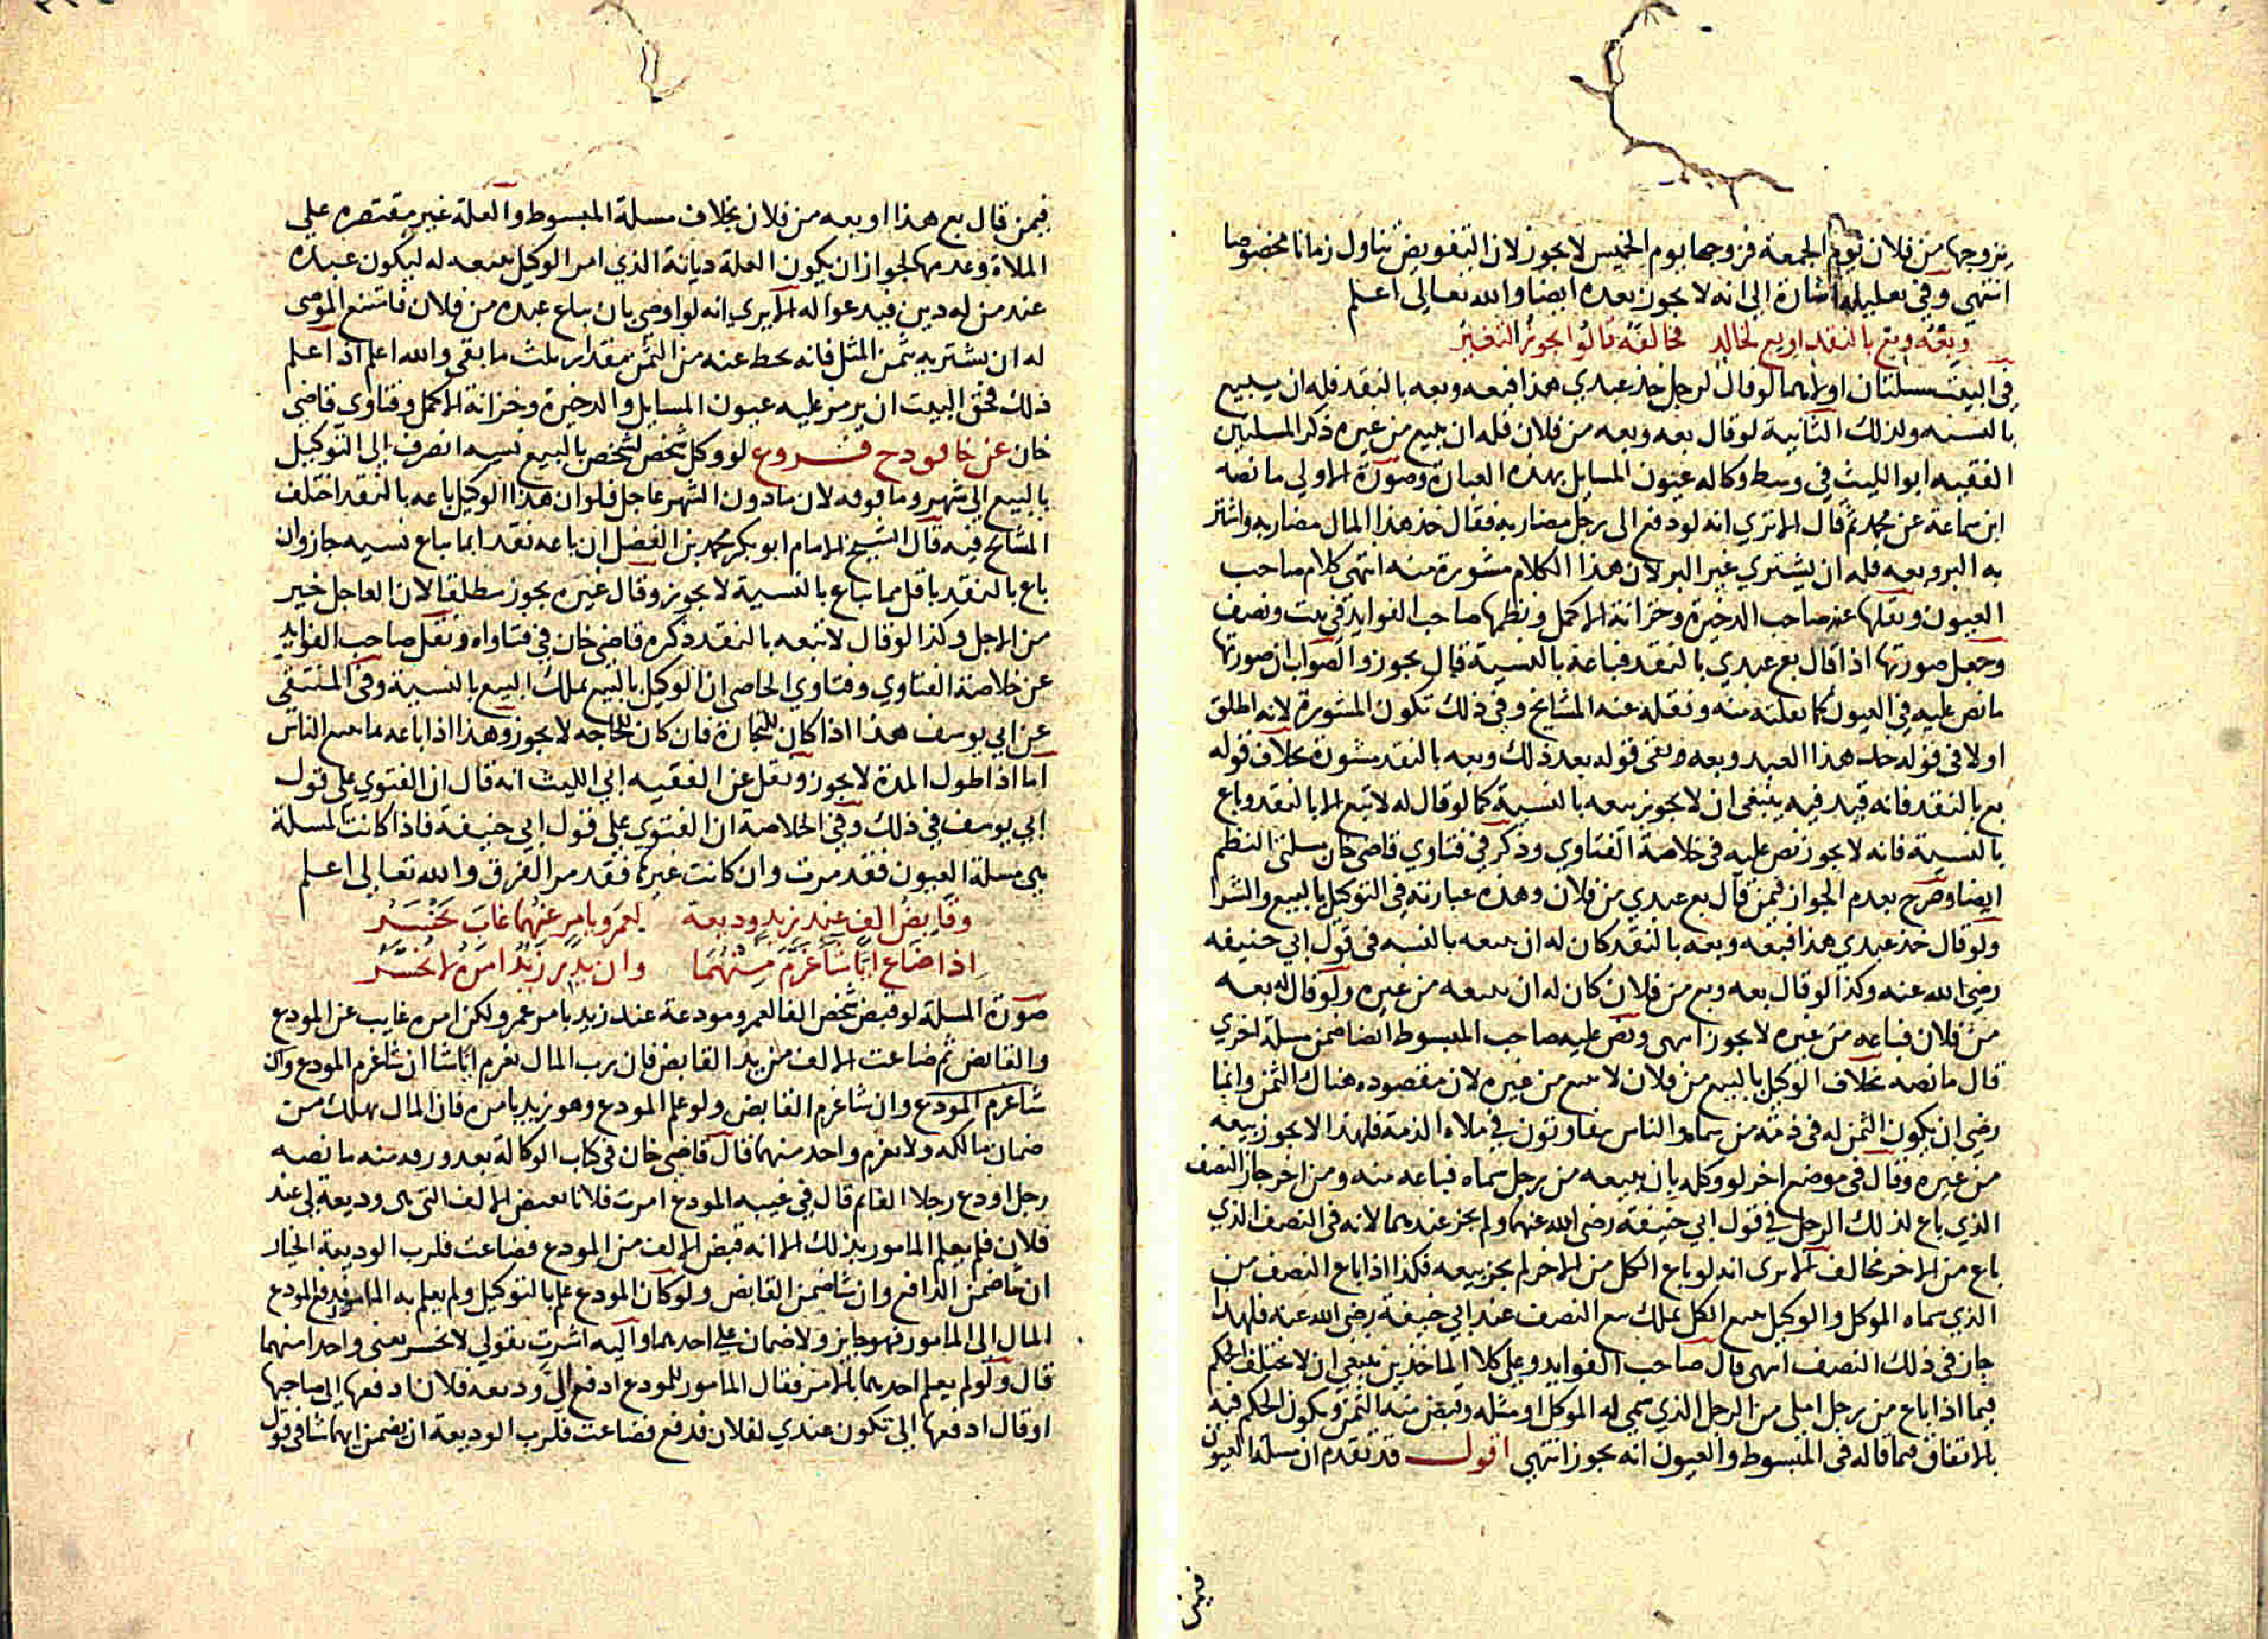 يزوجها من فلان يوم الجمعة فزوجها يوم الخميس لا يجوز لان التفويض تناول زمانا مخصوصا
انتهى وفي تعليله اشارة الى انه لا يجوز بعده ايضا والله تعالى اعلم
وبعه وبع بالنقد او بع لخالد فخالفه قالوا يجوز التغير
في البيت مسلتان اولاهما لو قال لرجل خذ عبدي هذا فبعه وبعه بالنقد فله ان يبيع
بالنسيه ولذلك الثانية لو قال بعه وبعه من فلان فله ان يبيع من غيره ذكر المسلتين
الفقيه ابو الليث في وسط وكاله عيون المسايل بهذه العبارة وصورة الاولى ما نصه
ابن سماعة عن محمد ثم قال الا تري انه لو دفع الى رجل مضاربه فقال خذ هذا المال مضاربه واشتر
به البر وبعه فله ان يشتري غير البر لان هذا الكلام مشورة منه انتهى كلام صاحب
العيون ونقلها عنه صاحب الدخيرة وخزانة الاكمل ونظمها صاحب الفوايد في بيت ونصف
وجعل صورتها اذا قال بع عبدي بالنقد فباعه بالنسية قال يجوز والصواب ان صورتها
ما نص عليه في العيون كما نقلته منه ونقله عنه المشايخ وفي ذلك تكون المشورة لانه اطلق
اولا في قوله خذ هذا العبد وبعه فبقي قوله بعد ذلك وبعه بالنقد مشورة بخلاف قوله
بع بالنقد فانه قيد فيه ينبغي ان لا يجوز بيعه بالنسية كما لو قال له لا تبع الا بالنقد وباع
بالنسية فانه لا يجوز نص عليه في خلاصة الفتاوي وذكر في فتاوي قاضي خان مسلتي النظم
ايضا وصرح بعدم الجواز فيمن قال بع عبدي من فلان وهذه عبارته في التوكيل بالبيع والشرا
ولو قال خذ عبدي هذا فبعه وبعه بالنقد كان له ان يبيعه بالنسيه في قول ابي حنيفه
رضي الله عنه وكذا لو قال بعه وبع من فلان كان له ان يبيعه من غيره ولو قال له بعه
من فلان فباعه من غيره لا يجوز انتهى ونص عليه صاحب المبسوط ايضا ضمن مسلة اخري
قال ما نصه بخلاف الوكيل بالبيع من فلان لا يبيع من غيره لان مقصوده هناك الثمن وانما
رضي ان يكون الثمن له في ذمة من سماه والناس يتفاوتون في ملاه الذمة فلهذا لا يجوز بيعه
من غيره وقال في موضع اخر لو وكله بان يبيعه من رجل سماه فباعه منه ومن اخر جاز النصف
الذي باع لذلك الرجل في قول ابي حنيفة رضي الله عنه ولم يجز عندهما لانه في النصف الذي
باع من الاخر مخالف الا يرى انه لو باع الكل من الاخر لم يجز بيعه فكذا اذا باع النصف من
الذي سماه الموكل والوكيل ببيع الكل يملك بيع النصف عند ابي حنيفة رضي الله عنه فلهذا
جاز في ذلك النصف انتهى قال صاحب الفوايد وعلى كلا الماخذين ينبغي ان لا يختلف الحكم
فيما اذا باع من رجل املى من الرجل الذي سمي له الموكل او مثله وقبض منه الثمن ويكون الحكم فيه
بالاتفاق فما قاله في المبسوط والعيون انه يجوز انتهى اقول قد تقدم ان مسلة العيون
فيمن
فيمن قال بع هذا او بعه من فلان بخلاف مسلة المبسوط والعلة غير مقتصره علي
الملاة وعدمها لجواز ان يكون العلة ديانة الذي امر الوكيل ببيعه له ليكون عبده
عند من له دين فيدعوا له الا يري انه لو اوصى بان يباع عبده من فلان فامتنع الموصى
له ان يشتريه بثمن المثل فانه يحط عنه من الثمن مقدار ثلث ما بقى والله اعلم اذا علم
ذلك فحق البيت ان يرمز عليه عيون المسايل والدخيرة وخزانة الاكمل وفتاوي قاضي
خان عن خا فودح فروع لو وكل شخص لشخص بالبيع نسيه انصرف الى التوكيل
بالبيع الى شهر وما فوقه لان ما دون الشهر عاجل فلو ان هذا الوكيل باعه بالنقد اختلف
المشايخ فيه قال الشيخ الامام ابو بكر محمد بن الفضل ان باعه نقدا بما يباع نسيه جاز وان
باع بالنقد باقل مما يباع بالنسية لا يجوز وقال غيره يجوز مطلقا لان العاجل خير
من الاجل وكذا لو قال لا تبعه بالنقد ذكره قاضي خان في فتاواه ونقل صاحب الفوايد
عن خلاصة الفتاوي وفتاوي الخاصي ان الوكيل بالبيع يملك البيع بالنسية وفي المنتقى
عن ابي يوسف هذا اذا كان للتجارة فان كان للحاجه لا يجوز وهذا اذا باعه بما يبيع الناس
اما اذا طول المدة لا يجوز ونقل عن الفقيه ابي الليث انه قال ان الفتوي على قول
ابي يوسف في ذلك وفي الخلاصة ان الفتوي على قول ابي حنيفة فاذا كانت المسلة
هي مسلة العيون فقد مرت وان كانت غيرها فقد مر الفرق والله تعالى اعلم
وقابض الف عند زيد وديعة لعمرو بامر عنهما غاب يخسر
اذا ضاع ايا شا غرم منهما وان يدر زيدا امره لا يخسر
صورة المسلة لو قبض شخص الفا لعمرو مودعة عند زيد بامر عمرو ولكن امره غايب عن المودع
والقابض ثم ضاعت الالف من يد القابض فان رب المال يغرم ايا شا ان شا غرم المودع وان
شا غرم المودع وان شا غرم القابض ولو علم المودع وهو زيد بامره فان المال يهلك من
ضمان مالكه ولا يغرم واحد منهما قال قاضي خان في كتاب الوكالة بعد ورقه منه ما نصه
رجل اودع رجلا الفا ثم قال في غيبه المودع امرت فلانا بقبض الالف التي هي وديعة لي عند
فلان فلم يعلم المامور بذلك الا انه قبض الالف من المودع فضاعت فلرب الوديعة الخيار
ان شا ضمن الدافع وان شا ضمن القابض ولو كان المودع علم بالتوكيل ولم يعلم به المامور فدفع المودع
المال الى المامور فهو جايز ولا ضمان على احدهما واليه اشرت بقولي لا يخسر يعني واحدا منهما
قال ولو لم يعلم احدهما بالامر فقال المامور للمودع ادفع الى وديعه فلان ادفعها الى صاحبها
او قال ادفعها الى تكون عندي لفلان فدفع فضاعت فلرب الوديعة ان يضمن ايهما شا في قول